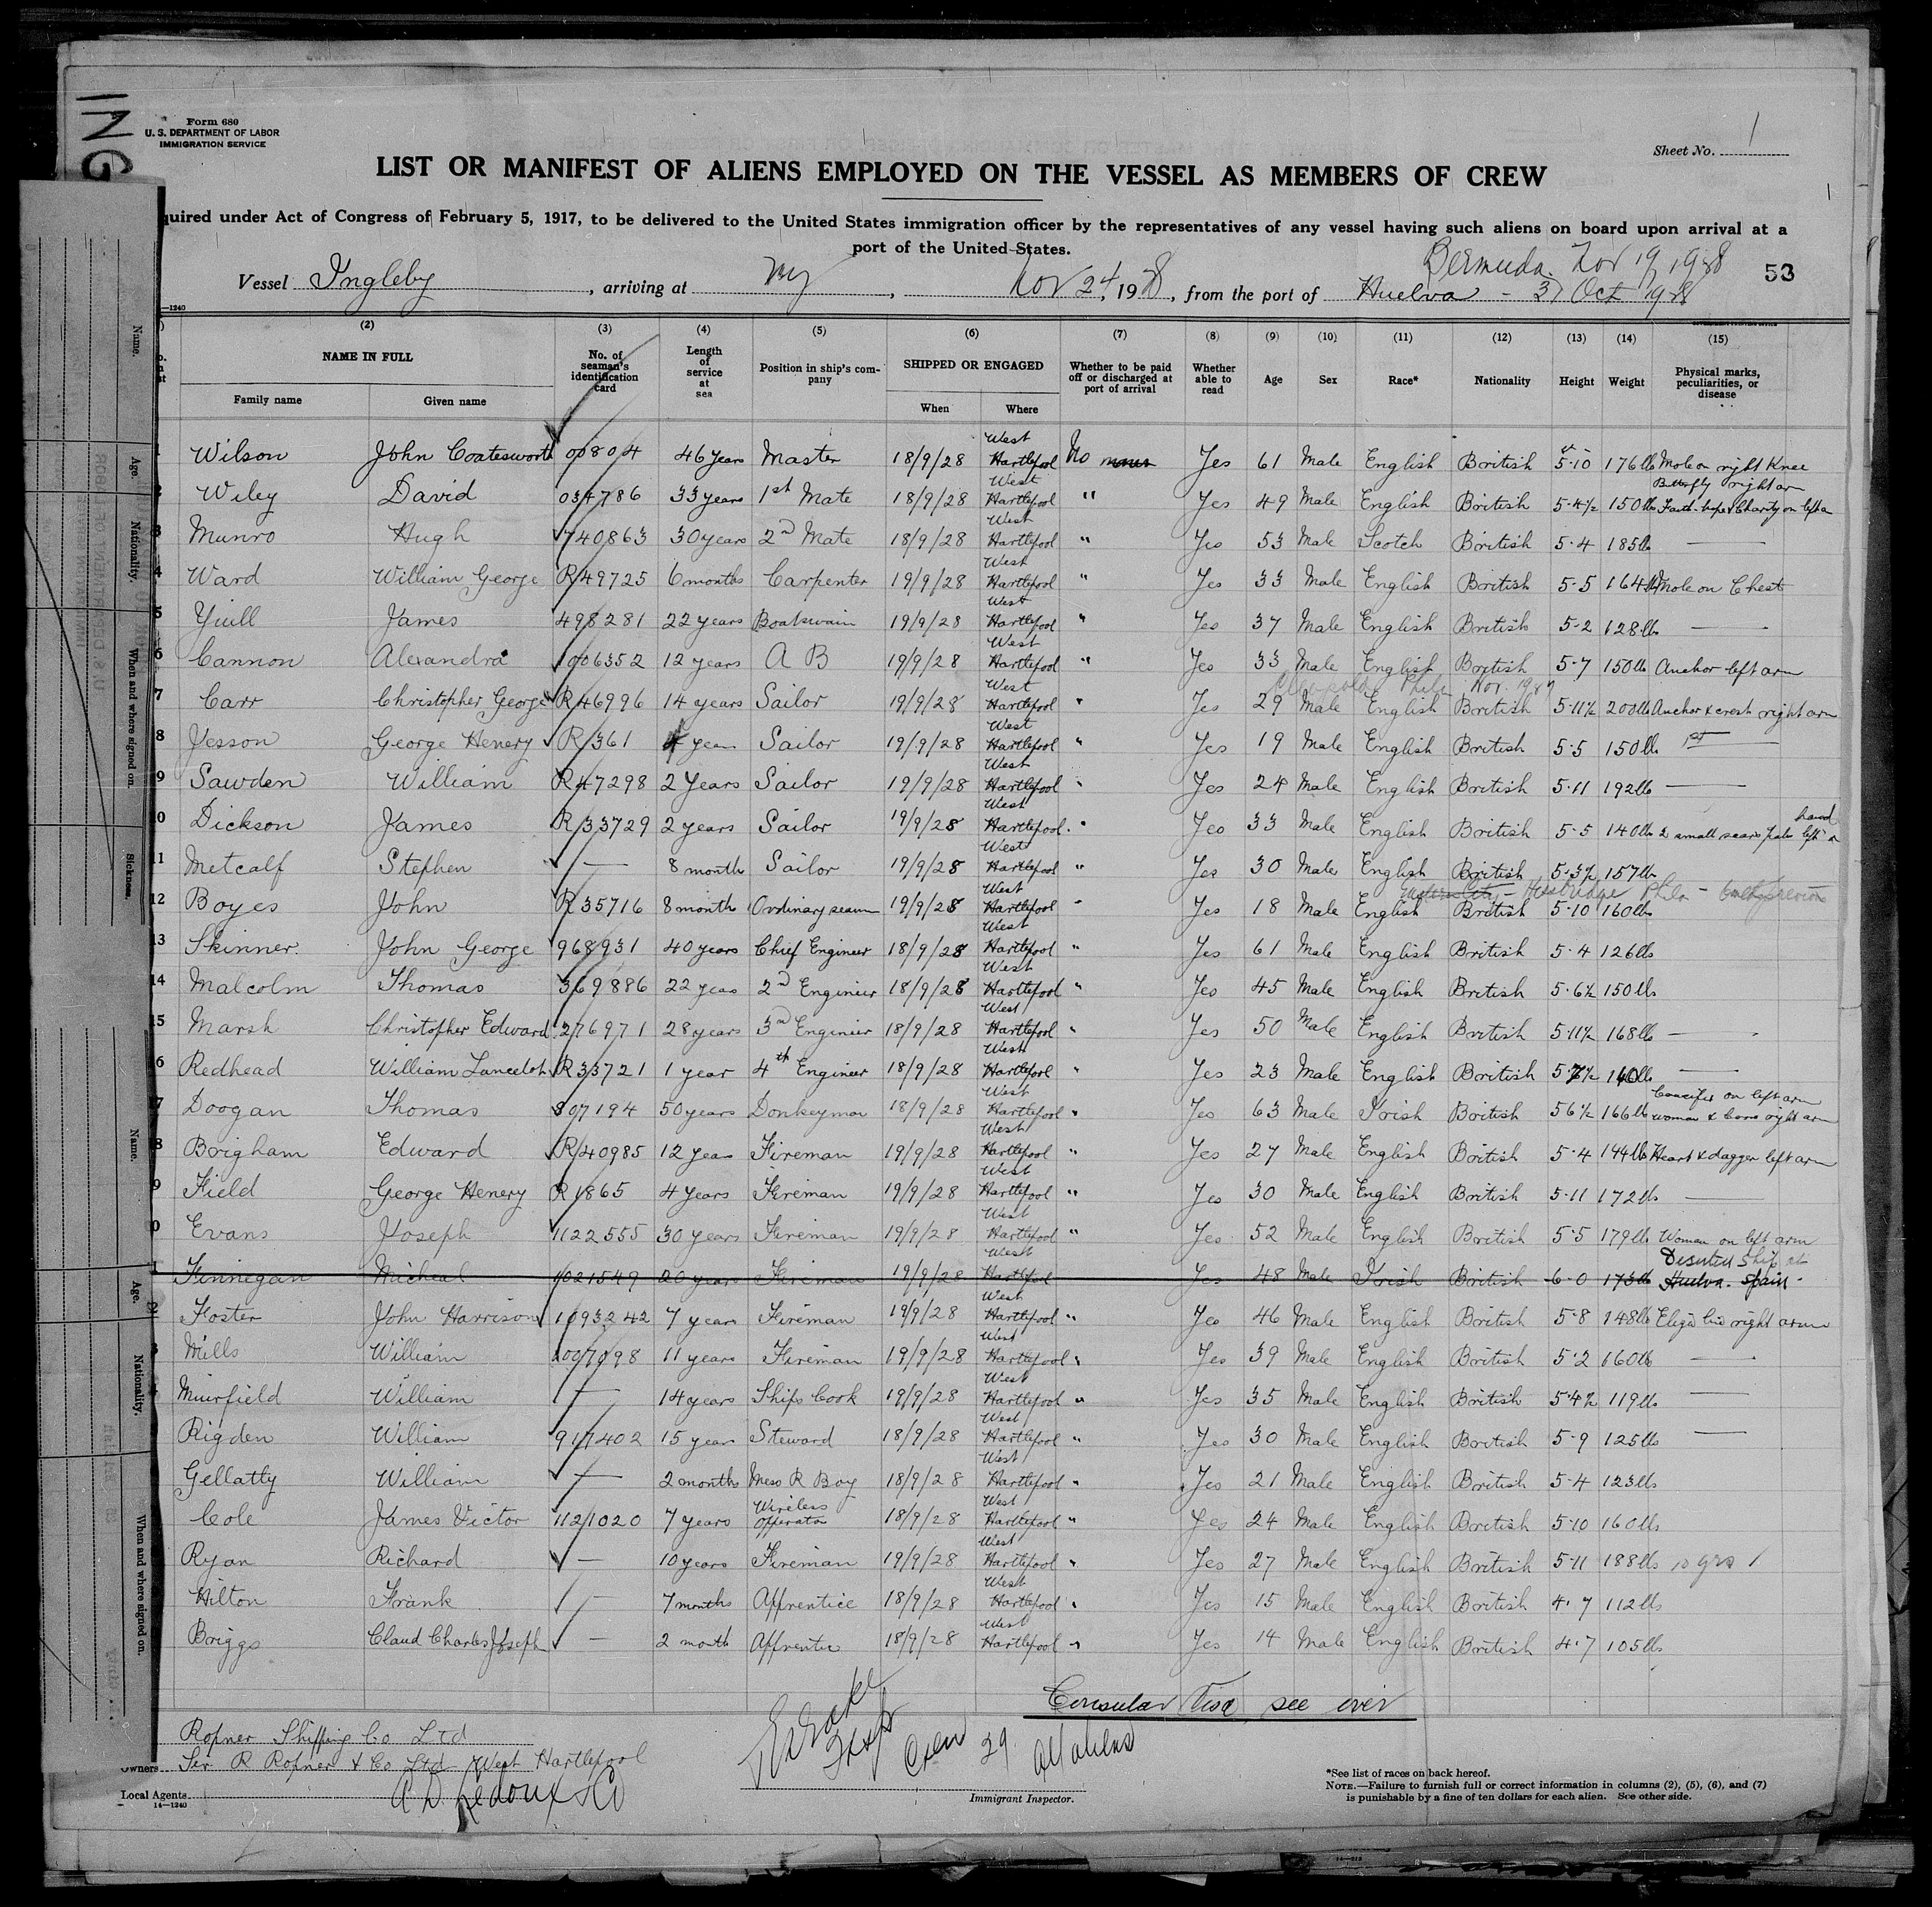 ING
Form 680
U. S. DEPARTMENT OF LABOR
IMMIGRATION SERVICE
Sheet No. 1
LIST OR MANIFEST OF ALIENS EMPLOYED ON THE VESSEL AS MEMBERS OF CREW
quired under Act of Congress of February 5, 1917, to be delivered to the United States immigration officer by the representatives of any vessel having such aliens on board upon arrival at a
port of the United States.
Bermuda. Nov 19 1928
53
Vessel Ingleby, arriving at NY, Nov 24, 1928, from the port of Huelva - 31 Oct 1928
(2) (3) (4) (5) (6) (7) (8) (9) (10) (11) (12) (13) (14) (15)
NAME IN FULL No. of seaman's identification card Length of service at sea Position in ship's company SHIPPED OR ENGAGED Whether to be paid off or discharged at port of arrival Whether able to read Age Sex Race* Nationality Height Weight Physical marks, peculiarities, or disease
Family name Given name When Where
1 Wilson John Coatesworth 00804 46 years Master 18/9/28 West Hartlepool No Yes 61 Male English British 5-10 176lb Mole on right Knee
2 Wiley David 034786 33 years 1st Mate 18/9/28 West Hartlepool " Yes 49 Male English British 5-4½ 150lbs Butterfly right arm Faith hope & Charity on left a
3 Munro Hugh 740863 30 years 2nd Mate 18/9/28 West Hartlepool " Yes 53 Male Scotch British 5-4 185lb —
4 Ward William George R49725 6 months Carpenter 19/9/28 West Hartlepool " Yes 33 Male English British 5-5 164lb Mole on Chest
5 Yuill James 498281 22 years Boatswain 19/9/28 West Hartlepool " Yes 37 Male English British 5-2 128lb —
6 Cannon Alexandra 1006352 12 years A B 19/9/28 West Hartlepool " Yes 33 Male English British 5-7 150lb Anchor left arm
7 Carr Christopher George R46996 14 years Sailor 19/9/28 West Hartlepool " Yes 29 Male English British 5-11½ 200lb Anchor & crest right arm
8 Jesson George Henery R/361 4 years Sailor 19/9/28 West Hartlepool " Yes 19 Male English British 5-5 150lb 1st —
9 Sawden William R47298 2 Years Sailor 19/9/28 West Hartlepool " Yes 24 Male English British 5-11 192lb —
0 Dickson James R/33729 2 years Sailor 19/9/28 West Hartlepool " Yes 33 Male English British 5-5 140lb 2 small scars left hand
11 Metcalf Stephen — 8 month Sailor 19/9/28 West Hartlepool " Yes 30 Male English British 5-3½ 157lb
12 Boyes John R35716 8 month Ordinary seam 19/9/28 West Hartlepool " Yes 18 Male English British 5-10 160lb
13 Skinner John George 968931 40 years Chief Engineer 18/9/28 West Hartlepool " Yes 61 Male English British 5-4 126lb
14 Malcolm Thomas 369886 22 years 2nd Enginier 18/9/28 West Hartlepool " Yes 45 Male English British 5-6½ 150lb
15 Marsh Christopher Edward 276971 28 years 3rd Enginier 18/9/28 West Hartlepool " Yes 50 Male English British 5-11½ 168lb —
6 Redhead William Lancelot R33721 1 year 4th Engineer 18/9/28 West Hartlepool " Yes 23 Male English British 5-7½ 140lb —
7 Doogan Thomas 807194 50 years Donkeyman 18/9/28 West Hartlepool " Yes 63 Male Irish British 5 6½ 166lb Crucifix on left arm woman & right arm
8 Brigham Edward R/40985 12 years Fireman 19/9/28 West Hartlepool " Yes 27 Male English British 5-4 144lb Heart & dagger left arm
9 Field George Henery R1865 4 years Fireman 19/9/28 West Hartlepool " Yes 30 Male English British 5-11 172lb —
0 Evans Joseph 1122555 30 years Fireman 19/9/28 West Hartlepool " Yes 52 Male English British 5-5 179lb Woman on left arm
1 Finnegan Micheal 1021549 20 years Fireman 19/9/28 West Hartlepool Yes 48 Male Irish British 6-0 173lb Deserted Ship at Huelva. Spain.
2 Foster John Harrison 1093242 7 years Fireman 19/9/28 West Hartlepool " Yes 46 Male English British 5-8 148lb right arm
3 Mills William 1007098 11 years Fireman 19/9/28 West Hartlepool " Yes 39 Male English British 5-2 160lb —
Muirfield William — 14 years Ships Cook 19/9/28 West Hartlepool " Yes 35 Male English British 5-4½ 119lb —
Rigden William 917402 15 years Steward 18/9/28 West Hartlepool " Yes 30 Male English British 5-9 125lb —
Gellatly William — 2 months Mess R Boy 18/9/28 West Hartlepool " Yes 21 Male English British 5-4 123lb
Cole James Victor 1121020 7 years Wireless Opperator 18/9/28 West Hartlepool " Yes 24 Male English British 5-10 160lb
Ryan Richard — 10 years Fireman 19/9/28 West Hartlepool " Yes 27 Male English British 5-11 188lb 10 yrs
Hilton Frank — 7 months Apprentice 18/9/28 West Hartlepool " Yes 15 Male English British 4-7 112lb
Briggs Claud Charles Joseph — 2 month Apprentice 18/9/28 West Hartlepool " Yes 14 Male English British 4-7 105lb
Consular Visa see over
Crew 29 All aliens
Ropner Shipping Co Ltd
Owners Sir R Ropner & Co Ltd West Hartlepool
Local Agents A D Ledoux & Co
14—1240
Immigrant Inspector.
*See list of races on back hereof.
NOTE.—Failure to furnish full or correct information in columns (2), (5), (6), and (7)
is punishable by a fine of ten dollars for each alien. See other side.
Name.
Age.
Nationality.
When and where signed on.
Sickness.
Name.
Age.
Nationality.
When and where signed on.